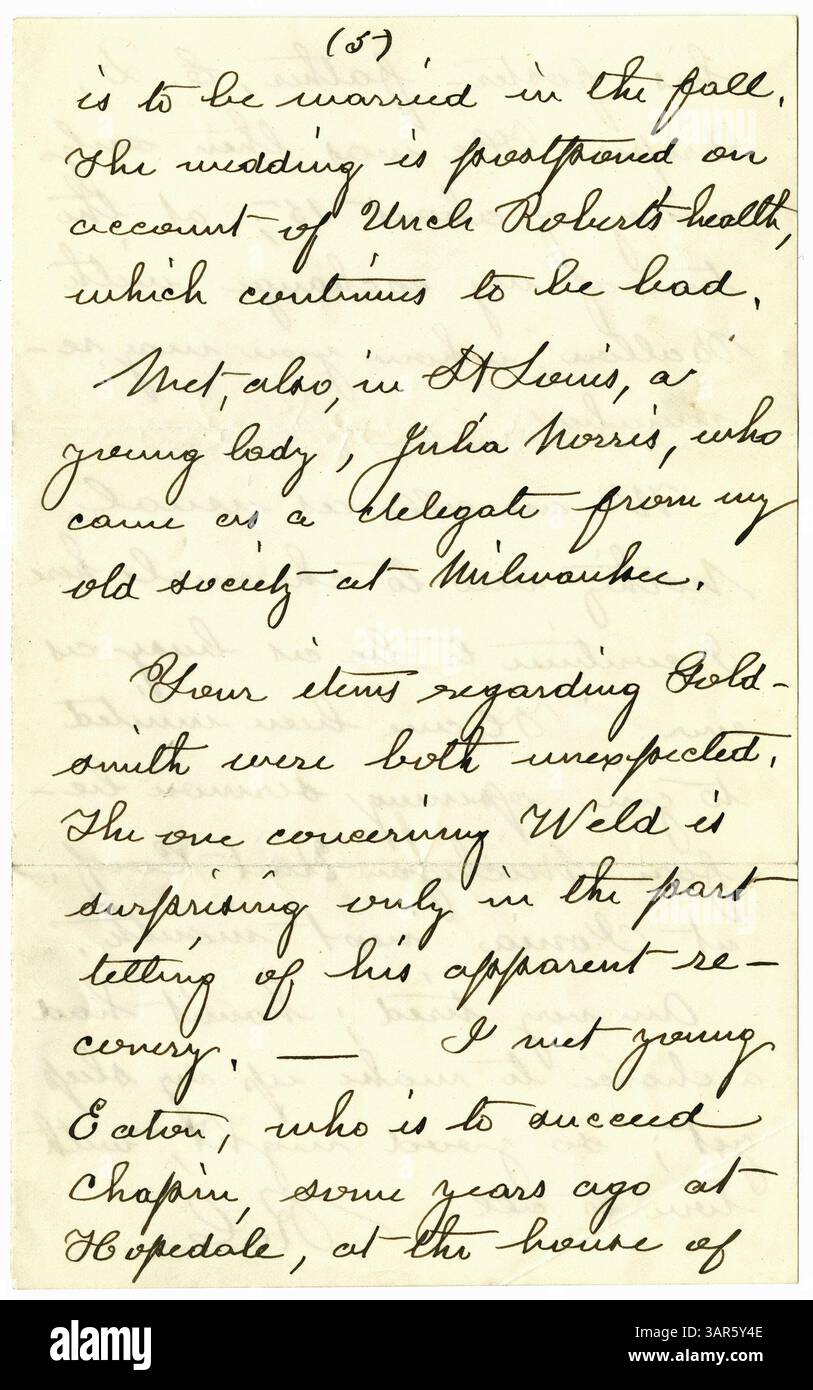 (5)
is to be married in the fall.
The wedding is postponed on
account of Uncle Robert's health,
which continues to be bad.
Met, also, in St Louis, a
young lady, Julia Norris, who
came as a delegate from my
old society at Milwaukee.
Your items regarding Gold-
smith were both unexpected.
The one concerning Weld is
surprising only in the part
telling of his apparent re-
covery. — I met young
Eaton, who is to succeed
Chapin, some years ago at
Hopedale, at the house of
alamy
Image ID: 3AR5Y4E
www.alamy.com